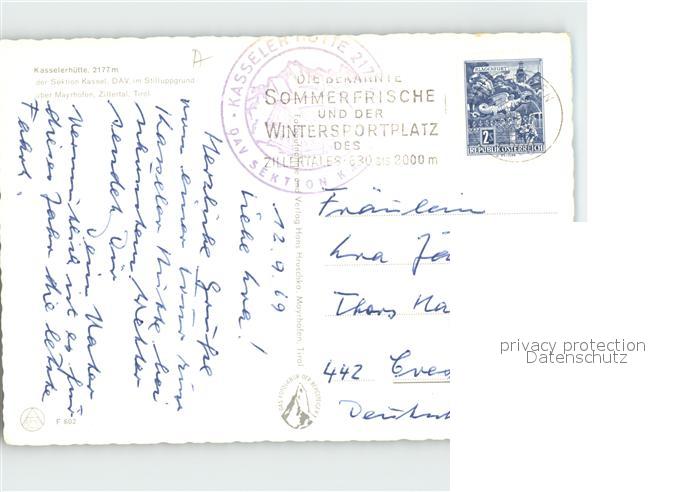 Kasselerhütte, 2177m
der Sektion Kassel, DAV, im Stilluppgrund
über Mayrhofen, Zillertal, Tirol
KASSELER HÜTTE 217
DAV SEKTION KA
DIE BEKANNTE
SOMMERFRISCHE
UND DER
WINTERSPORTPLATZ
DES
ZILLERTALES · 630 BIS 2000 m
KLAGENFURT
2S
REPUBLIK ÖSTERREICH
12.9.69
Liebe Eva!
Herzliche Grüße
von einer Tour zur
Kasseler Hütte bei
schönstem Wetter
sendet Dir
Dein Vater
Vermutlich ist es für
dieses Jahr die letzte
Fahrt.
Verlag Hans Hruschka, Mayrhofen, Tirol
Fräulein
Eva Jä
Thors Na
442 Coes
Deutsch
F 602
privacy protection
Datenschutz